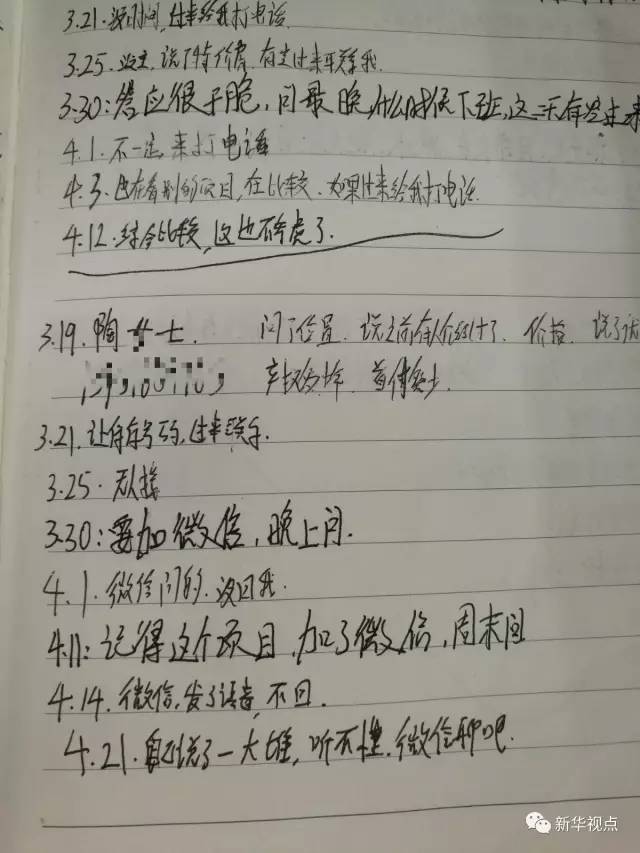 3.21.没时间,过来给我打电话.
3.25.说了特价房,有空过来再联系我.
3.30:答应很干脆,问最晚什么时候下班,这三天有空过来
4.1.不一定,来打电话
4.3.也在看别的项目,在比较.如果过来给我打电话.
4.12.综合比较,这也不考虑了.
3.19.陶女士. 问了位置.说之前有人介绍过了.价格.说了
产权 首付
3.21.让
3.25.无人接
3.30:要加微信,晚上问.
4.1.微信问的.没回我.
4.11:记得这个项目,加了微信,周末回
4.14.微信,发了语音,不回.
4.21.自己说了一大堆,听不懂.微信聊吧.
新华视点